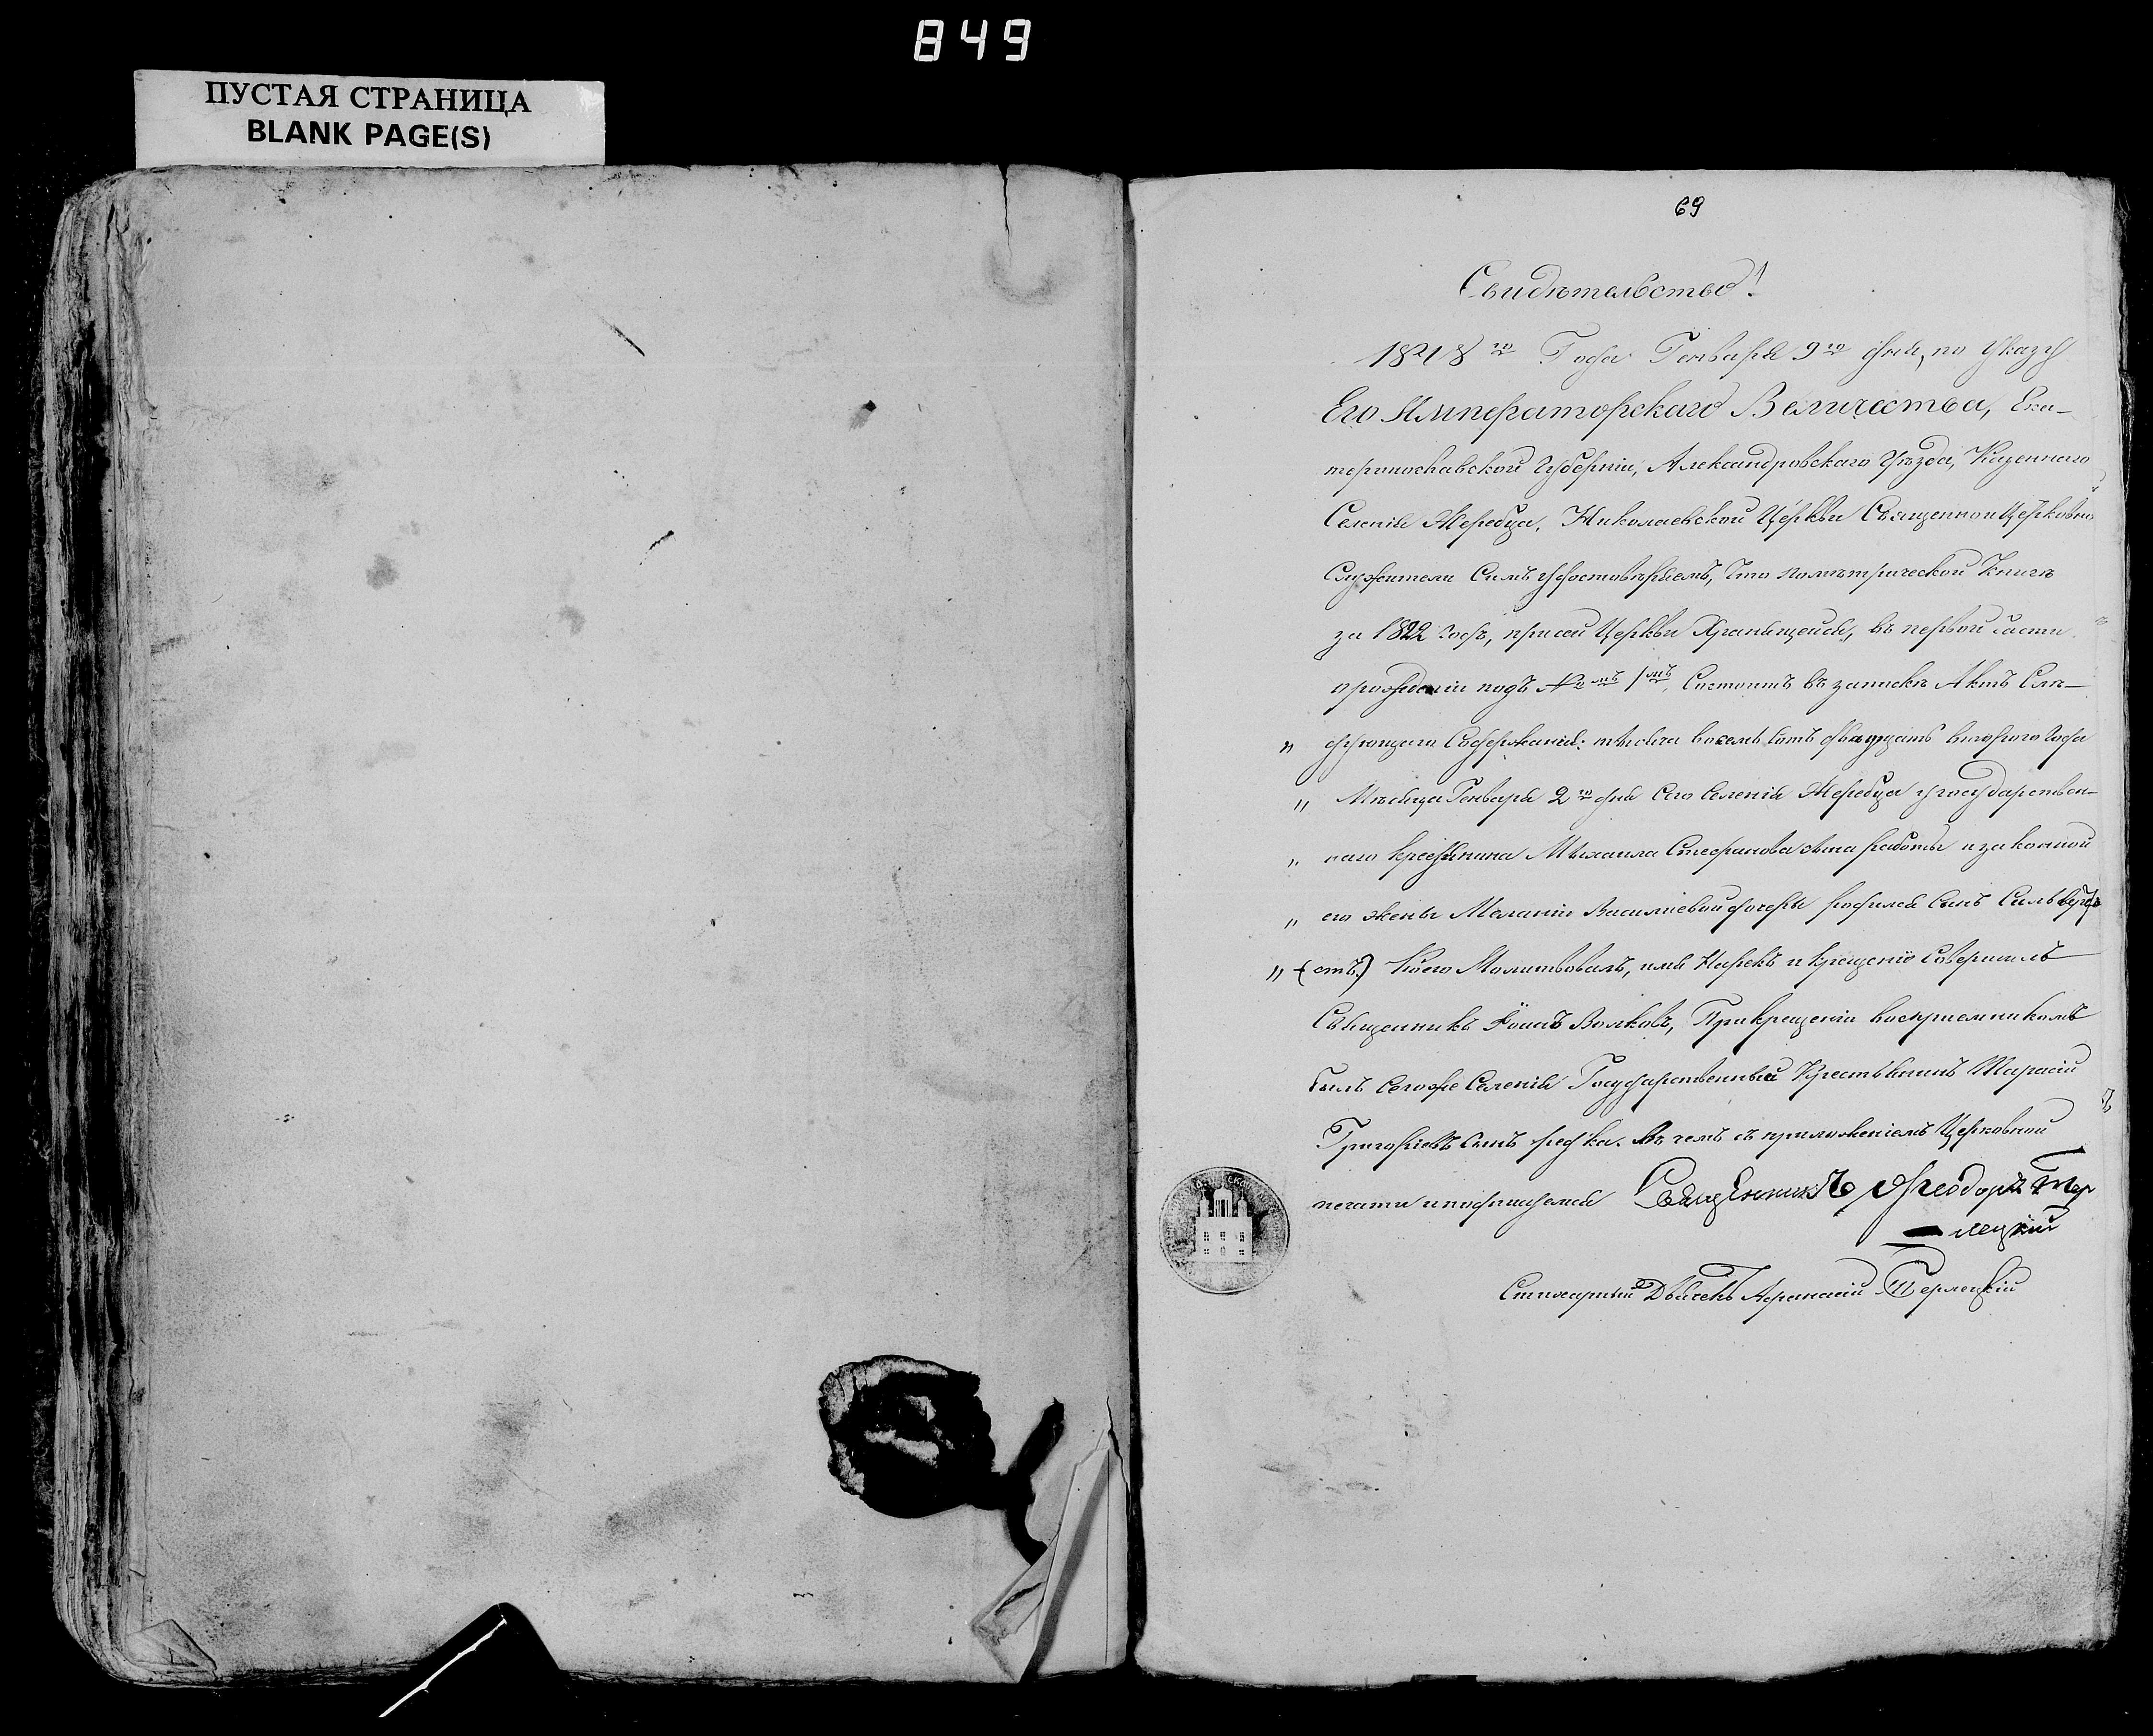 849
ПУСТАЯ СТРАНИЦА
BLANK PAGE(S)
69
Свидѣтельство!
18 8го Года Генваря 9го дня, по Указу
Его Императорскаго Величества, Ека-
теринославской Губерніи, Александровскаго Уѣзда, Казеннаго
Селенія Жеребца, Николаевской Церкви Священноицерковно
Служители Симъ удостовѣряемъ, что пометрической Книгѣ
за 1822 годъ, присей Церкви Хранящейся, въ первой части
орожденіи подъ №мъ 1мъ, Состоитъ въ запискѣ Актъ Слѣ-
„ дующаго Содержанія: тысяча восемь сотъ двадцать втораго года
„ Мѣсяца Генваря 2го дня Сего Селенія Жеребца угосударствен-
„ наго крестьянина Михаила Стефанова сына и законной
„ его жены Меланіи Василіевой дочери родился Сынъ Сильве
„ (стъ) Коего Молитвовалъ, имя Нарекъ и крещеніе Совершилъ
Священникъ Іоанъ Волковъ, Прикрещеніи воспріемникомъ
былъ Сегоже Селенія Государственный Крестьянинъ Тарасій
Григоріевъ сынъ Редька. Въ чемъ съ приложеніемъ Церковной
печати иподписуемся Священникъ Феодоръ Тер
-лецкій
Стихарный Дьячекъ Афанасій Терлецкій